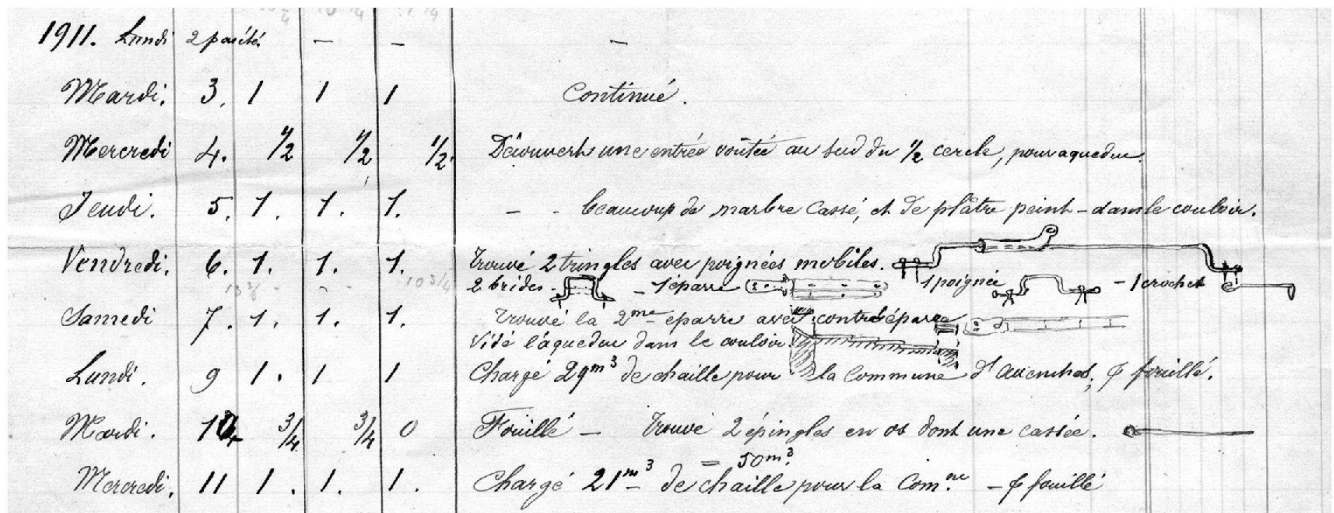 1911. Lundi 2 – – –
Mardi. 3. 1 1 1 Continué.
Mercredi 4. 1/2 1/2 1/2. Découvert une entrée voûtée au sud du 1/2 cercle, pour aqueduc.
Jeudi. 5. 1. 1. 1. – – beaucoup de marbre cassé, et de plâtre peint – dans le couloir.
Vendredi. 6. 1. 1. 1. Trouvé 2 tringles avec poignées mobiles.
2 brides – – 1 eparre 1 poignée – 1 crochet
Samedi 7. 1. 1. 1. Trouvé la 2me eparre avec contre éparre
Vidé l'aqueduc dans le couloir
Lundi. 9 1. 1 1 Chargé 29m3 de chaille pour la Commune d'Avenches, & fouillé.
Mardi. 10. 3/4 3/4 0 Fouillé – Trouvé 2 épingles en os dont une cassée.
– 50m3.
Mercredi. 11 1. 1. 1. Chargé 21m3 de chaille pour la Com.ne – & fouillé